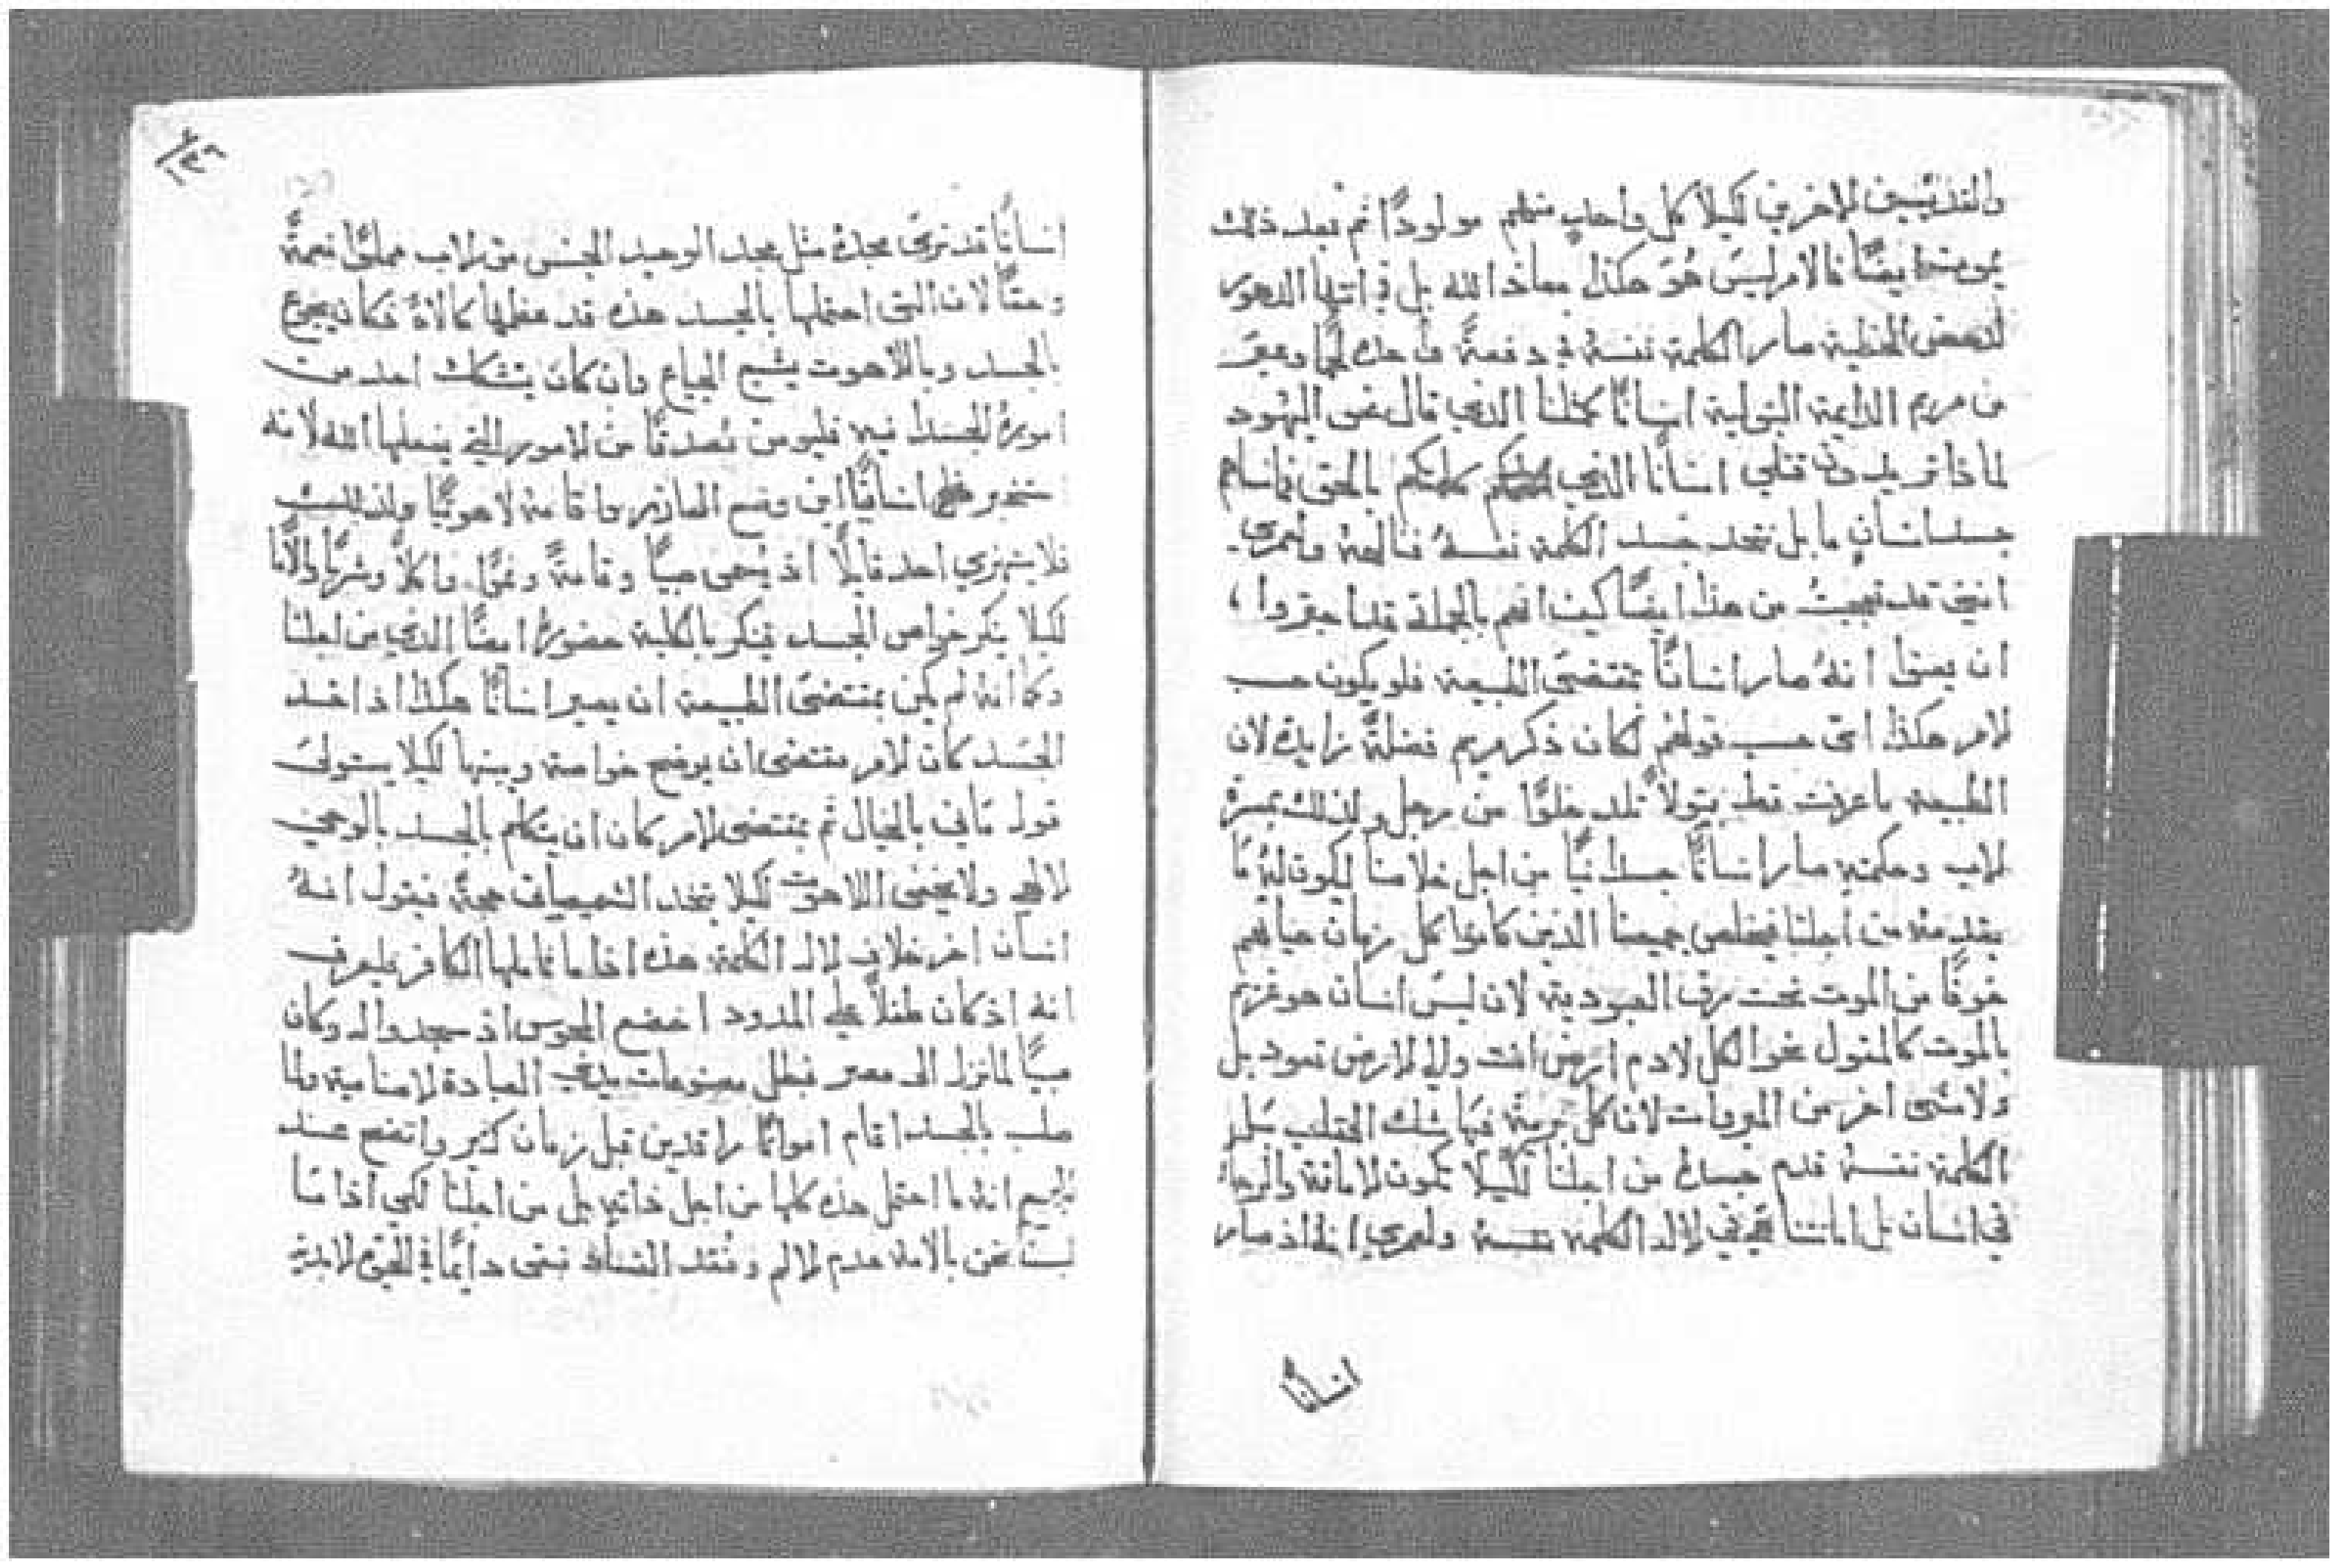 والقديسين الاخرين لكيلا كل واحد منهم مولودًا ثم بعد ذلك
يموت ايضًا فالامر ليس هُوَ هكذا معاذ الله بل في انتها الدهور
لدحض الخطية صار الكلمة نفسهُ في دفعةً واحدة لحمًا ومعَ
من مريم الدايمة البتولية انسانًا مثلنا الذي قال نحو اليهود
لماذا تريدون قتلي انسانًا الذي كلمتكم بالحق فانناهم
جسد انسانٍ ما بل نتحد جسد الكلمة نفسهُ فنالهه ولعمري
انني قد تعجبتُ من هذا ايضًا كيف انهم بالجملة قد اجتروا
ان يقولوا انهُ صار انسانًا بمقتضى الطبيعة فلو يكون حسب
لامر هكذا اى حسب قولهم لكان ذكر مريم فضلةً زايدة لان
الطبيعة ما عرفت قط بتولاً تلد خلوًا من رجل ولذلك بمسرة
لاب وحكمته صار انسانًا جسدانيًا من اجل خلاصنا ليكون لهُ ما
يقدمه من اجلنا فيخلص جميعنا الذين كانوا كل زمان حياتهم
خوفًا من الموت تحت رق العبودية لان ليس انسان هو غريم
بالموت كالمقول نحو الكل لادم ارض انت والى الارض تعود بل
ولا شى اخر من المبروات لان كل بريةً فيها شك التقلب بل
الكلمة نفسهُ قدم جسدهُ من اجلنا لكيلا تكون لامانة والرجا
في انسان بل امانتنا هي في لاله الكلمة نفسهُ ولعمري انهُ اذ صار
انسانًا
١٣٦
انسانًا قد نرى مجدهُ مثل مجد الوحيد الجنس من لاب مملوًا نعمةً
وحقًا لان التى احتملها بالجسد هذه قد عظمها كالاهٌ فكان يجوع
بالجسد وباللاهوت يشبع الجياع وان كان يتشكك احد من
امورهُ الجسدا نيه فليومن مُصدقًا من لامور التي يفعلها الله لانه
يستخبر انسانيًا اين وضع العازر واقامهُ لاهوتيًا ولذلك
فلا يستهزي احد قايلًا اذ يُسمى صبيًا وقامةً ونموًا واكلًا وشربًا والآمًا
لكيلا ينكر خواص الجسد فينكر بالكلية حضورهُ ايضًا الذي من اجلنا
وكما انه لم يكن بمقتضى الطبيعة ان يصير انسانًا هكذا اذ اخذ
الجسَد كان لامر مقتضى ان يوضح خواصه وبينها لكيلا يستولى
قول مَاني بالخيال ثم بمقتضى لامر كان ان يتكلم بالجسد بالوحي
لالهي ولا يخفى اللاهوت لكيلا يتخذ الشميصاتى حجةً فيقول انهُ
انسان اخر خلاف لاله الكلمة هذه اذا ما تاملها الكافر فليعرف
انه اذ كان طفلاً على المدود اخضع المجوس اذ سجدوا له وكان
صبيًا لما نزل الى مصر فبطل مصنوعات يدي العبادة لاصنامية ولما
صلب بالجسد اقام امواتًا راقدين قبل زمان كثير واتضح عند
الجميع انه ما احتمل هذه كلها من اجل ذاته بل من اجلنا لكي اذا ما
لبسنا نحن بالامه عدم لالم وفقد الفساد نبقى دايمًا في الحيوة لابدية